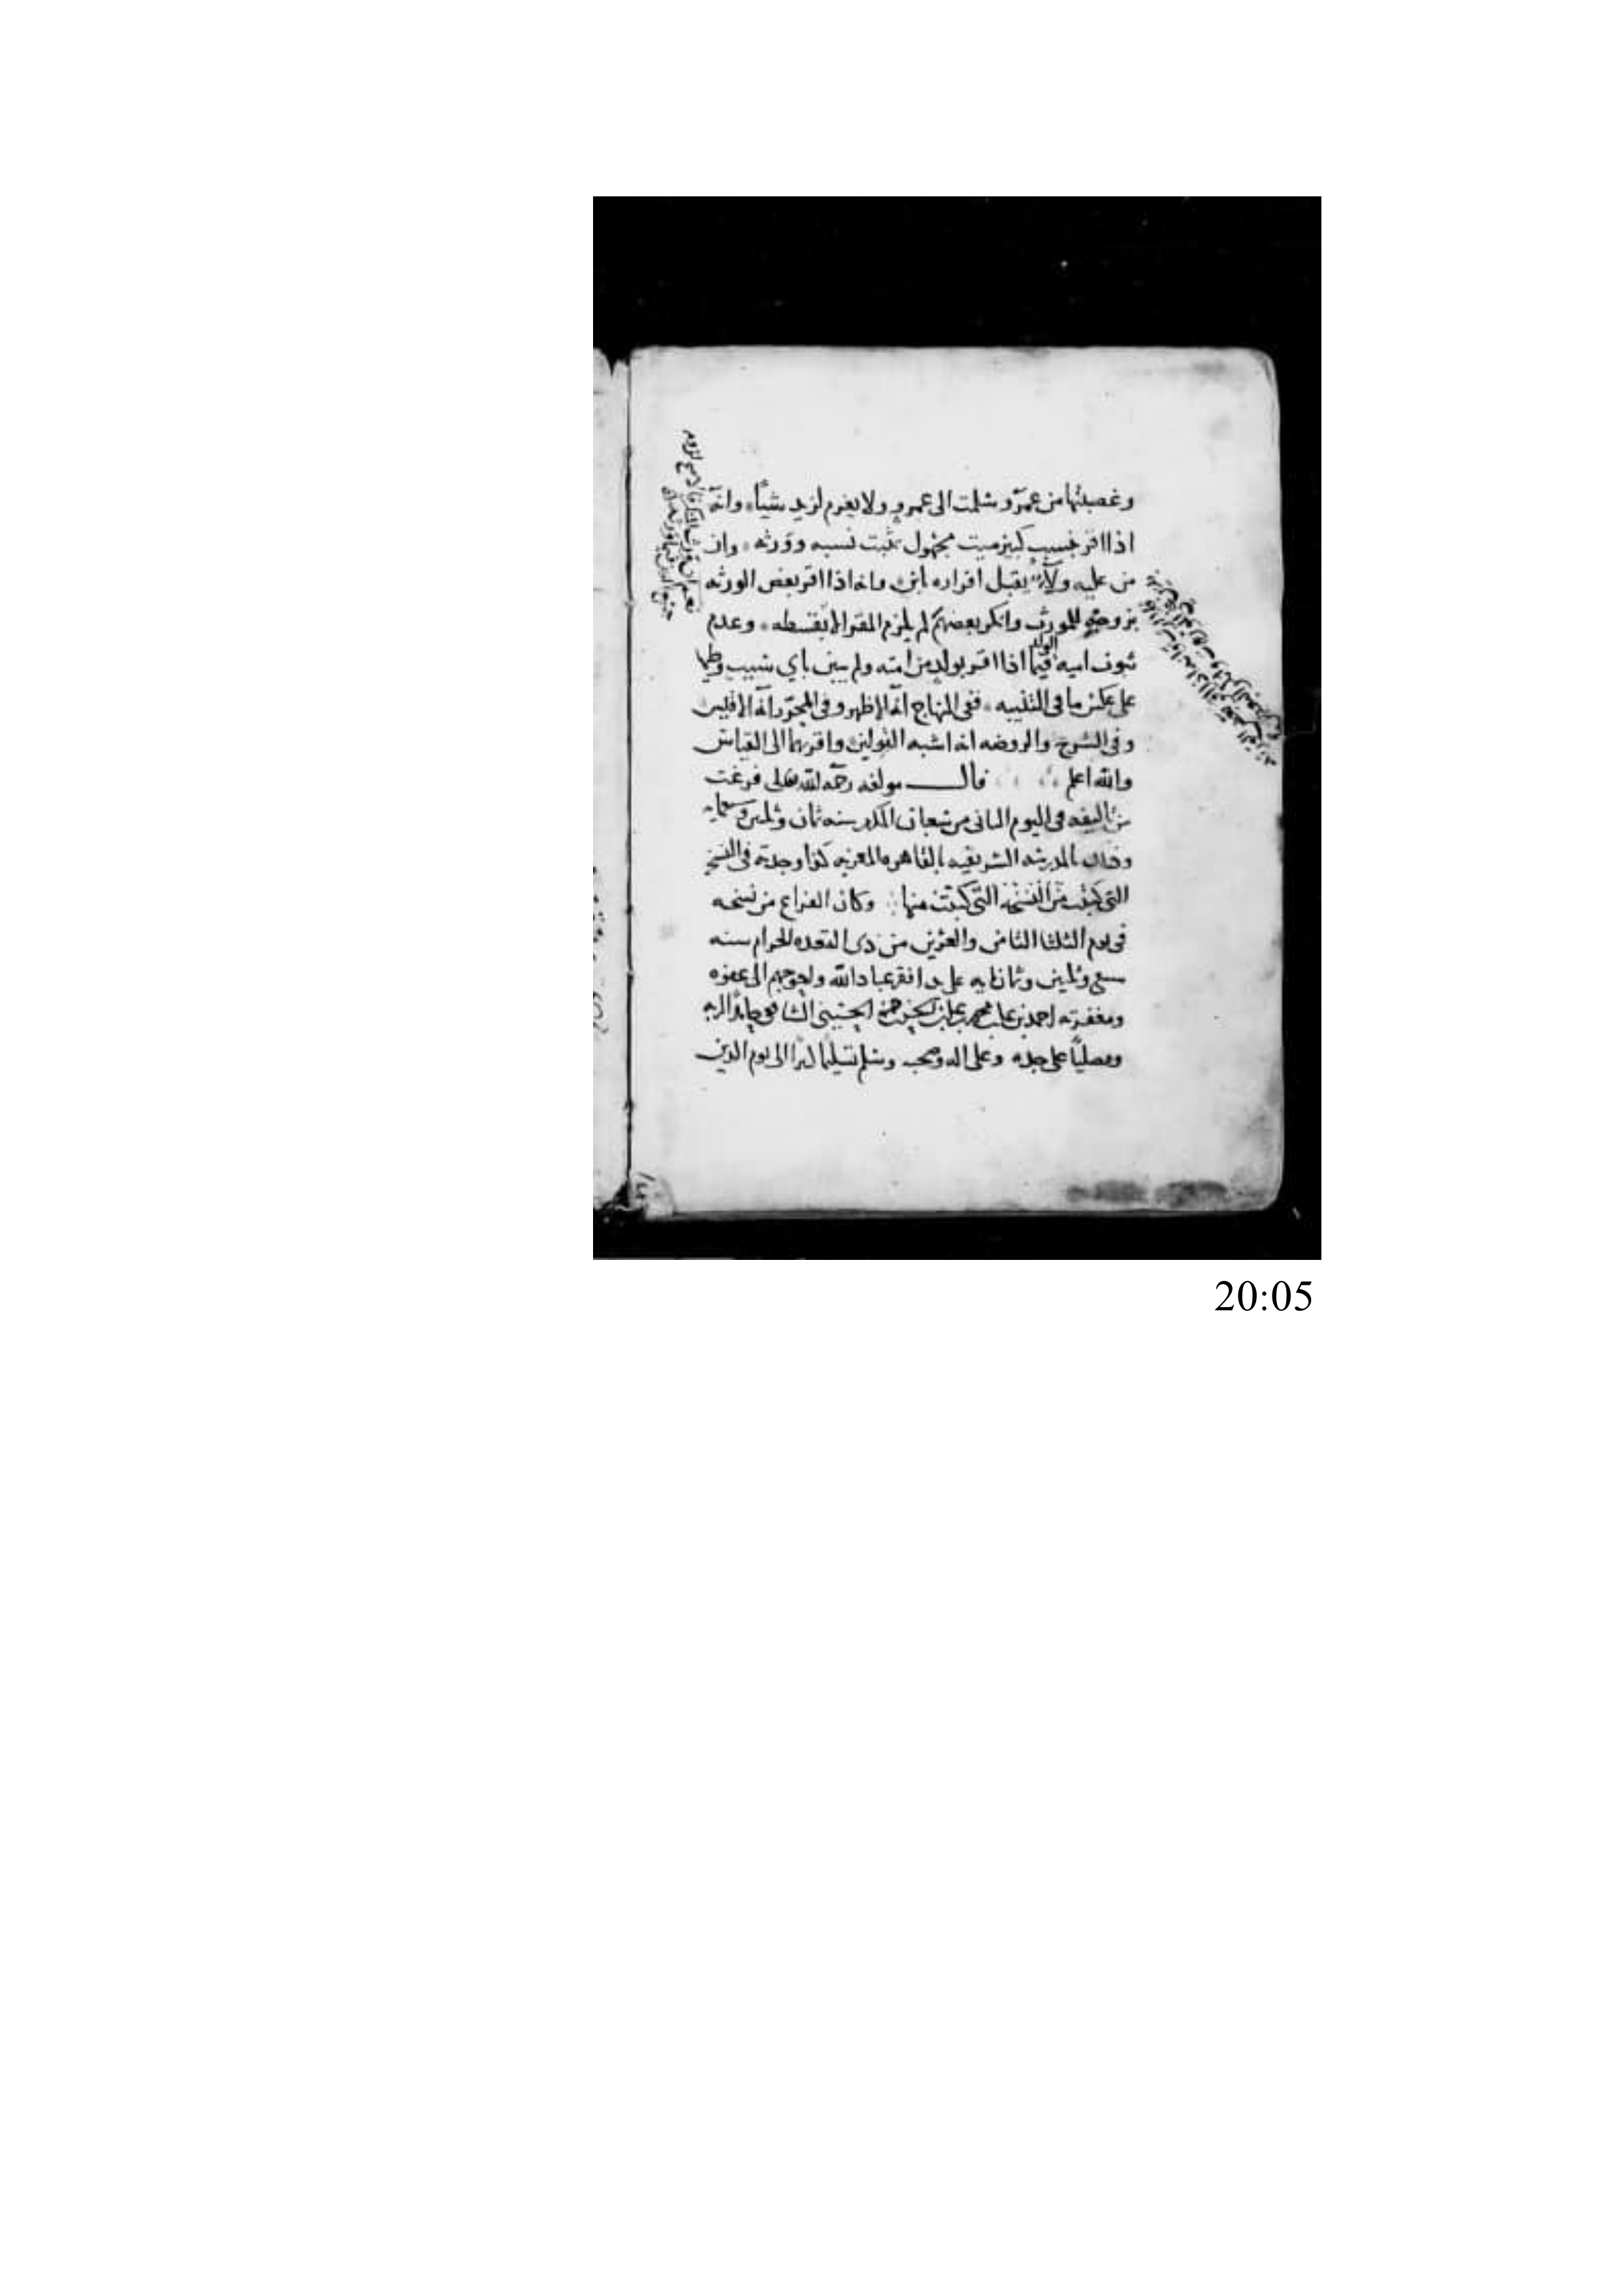 وغصبتها من عمرو سلمت الى عمرو ولا يغرم لزيد شيأ وانه
اذا اقر بنسب كبير ميت مجهول ثبت نسبه وورثه وان
من عليه ولاء يقبل اقراره بابن وانه اذا اقر بعض الورثه
بزوجه للمورث وانكر بعضهم لم يلزم المقر الا بقسطه وعدم
ثبوت اميه الولد فيما اذا اقر بولد من امته ولم يبين باي سبب وطيها
على عكس ما في التنبيه ففى المنهاج انه الاظهر وفى المحرر انه الاقيس
وفى الشرح والروضه انه اشبه القولين واقربهما الى القياس
والله اعلم قال مولفه رحمه الله تعالى فرغت
من تاليفه فى اليوم الثانى من شعبان المكرم سنه ثمان وثلثين وسبعمايه
وذلك بالمدرسه الشريفيه بالقاهره المعزيه كذا وجدته فى النسخه
التى كتبت من النسخه التى كتبت منها وكان الفراغ من نسخه
فى يوم الثلثا الثامن والعشرين من ذى القعده الحرام سنه
سبع وثلثين وثمانمايه على يد افقر عباد الله واحوجهم الى عفوه
ومغفرته احمد بن على بن محمد بن على بن الحسن بن حمزه الحسينى الشافعى حامدا لربه
ومصليا على جده وعلى اله وصحبه وسلم تسليما كثيرا الى يوم الدين
20:05